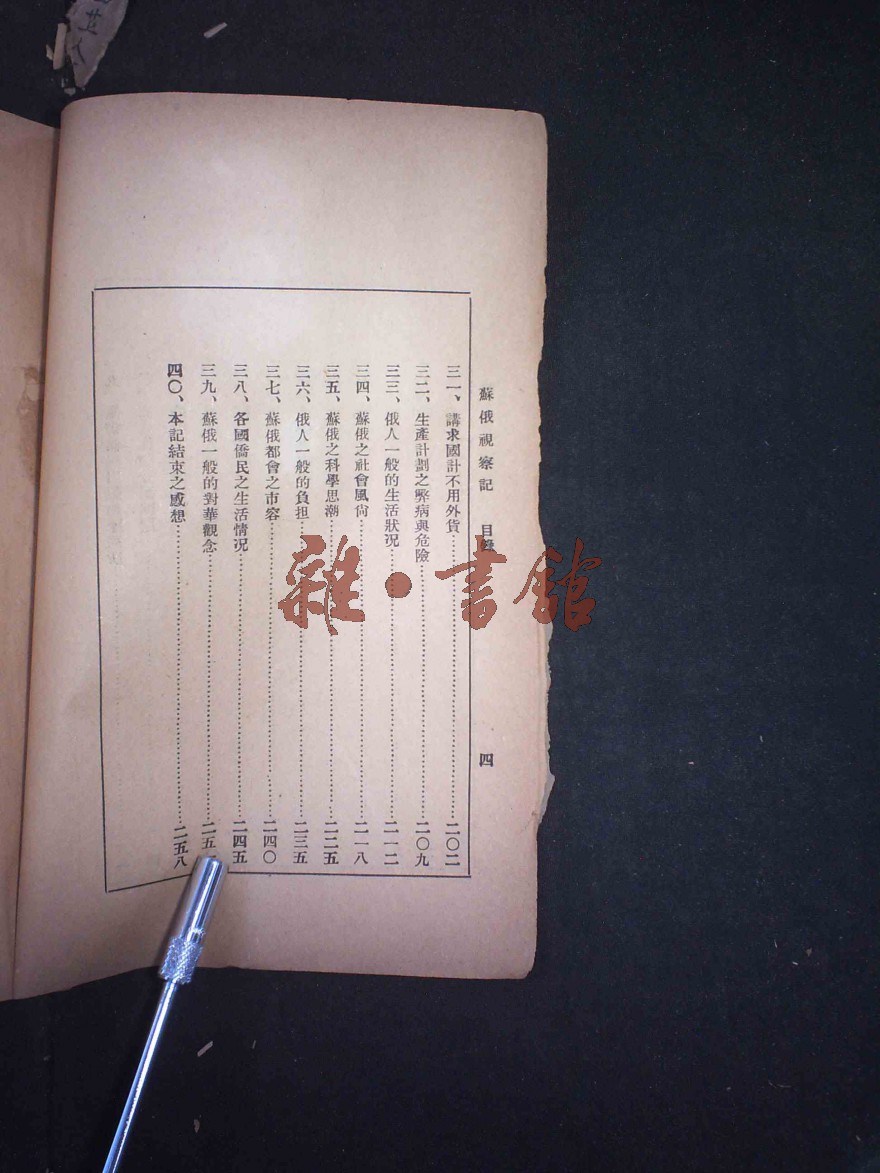 蘇俄視察記 目錄 四
三一、講求國計不用外貨…………二〇二
三二、生產計劃之弊病與危險…………二〇九
三三、俄人一般的生活狀況…………二一二
三四、蘇俄之社會風尙…………二一八
三五、蘇俄之科學思潮…………二二五
三六、俄人一般的負担…………二三五
三七、蘇俄都會之市容…………二四〇
三八、各國僑民之生活情况…………二四五
三九、蘇俄一般的對華觀念…………二五
四〇、本記結束之感想…………二五八
雜·書館